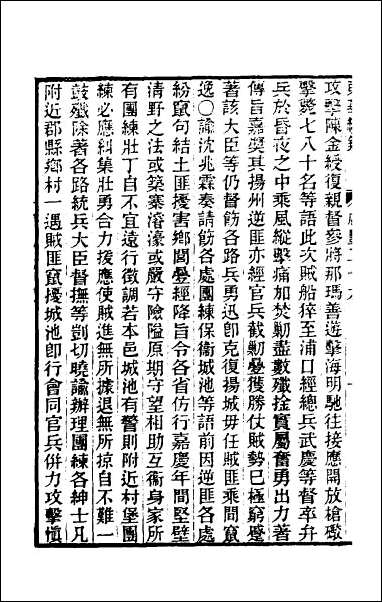 攻擊陳金綬復親督參將那瑪善遊擊海明馳往接應開放槍礮
擊斃七八十名等語此次賊船猝至浦口經總兵武慶等督率弁
兵於昏夜之中乘風縱擊痛加焚勦盡數殲捦實屬奮勇出力著
傳旨嘉奬其揚州逆匪亦經官兵截勦疊獲勝仗賊勢已極窮蹙
著該大臣等仍督飭各路兵勇迅卽克復揚城毋任賊匪乘間竄
逸○諭沈兆霖奏請飭各處團練保衞城池等語前因逆匪各處
紛竄句結土匪擾害鄉閭疊經降旨令各省仿行嘉慶年間堅壁
清野之法或築寨濬濠或嚴守險隘原期守望相助互衞身家所
有團練壯丁自不宜遠行徵調若本邑城池有警則附近村堡團
練必應糾集壯勇合力援應使賊進無所據退無所掠自不難一
鼓殲除著各路統兵大臣督撫等剴切曉諭辦理團練各紳士凡
附近郡縣鄉村一遇賊匪竄擾城池卽行會同官兵併力攻擊愼